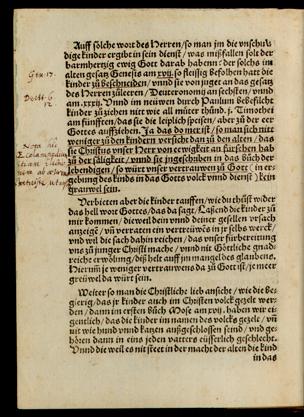 Auff sölche wort des Herren / so man jm die vnschul-
dige kinder ergibt in sein dienst / was mißfallen solt der
barmhertzig ewig Gott darab haben: der solchs im
alten gesatz Genesis am xvij. so fleissig befolhen hatt die
kinder zu beschneiden / vnnd sie von jugent an das gesatz
des Herren zu leren / Deuteronomij am sechsten / vnnd
am xxxij. Vnnd im neüwen durch Paulum befilcht
kinder zu ziehen nit wie all müter thund. 1. Timothei
am fünfften / das sie die leiplich speisen / aber zu der eer
Gottes auffziehen. Ja das do mer ist / so man sich nitt
weniger zu den kindern versicht dan zu den alten / das
sie Christus vnser Herr von ewigkait an fürsehen hab
zu der säligkeit / vnnd sie jngeschriben in das buch der
lebendigen / so würt vnser vertrauwen zu Gott (in er-
gebung des kinds in das Gottes volck vnnd dienst) kein
grauwel sein.
Verbieten aber die kinder tauffen / wie du thust wider
das hell wort Gottes / das da sagt / Lassend die kinder zu
mir kommen / dieweil dein vnnd deiner gesellen vrsach
anzeigt / vñ verraten ein vertreüwes in jr selbs werck /
vnd wil die sach dahin reichen / das vnser fürbetreitung
vns zu junger Christi mache / vnnd nit Götliche gnad-
reiche erwölung / diß helt auff jm mangel des glaubens.
Hierum je weniger vertrauwens da zu Gott ist / je meer
greüwel da würt sein.
Weiter so man die Christliche lieb ansicht / wie die be-
gierig / das jr kinder auch im Christen volck gezelt wer-
den / dann im ersten buch Mose am xvij. haben wir ei-
gentlich / das die kinder im namen des volcks gezelt / vñ
nit wie hund vnnd katzen außgeschlossen seind / vnd ge-
hören dann in eins jeden vatters eüsserlich geschlecht.
Vnnd die weil es nit steet in der macht der alten die kind
in das
Gen: 17.
Deut: 6
32
Nota hic